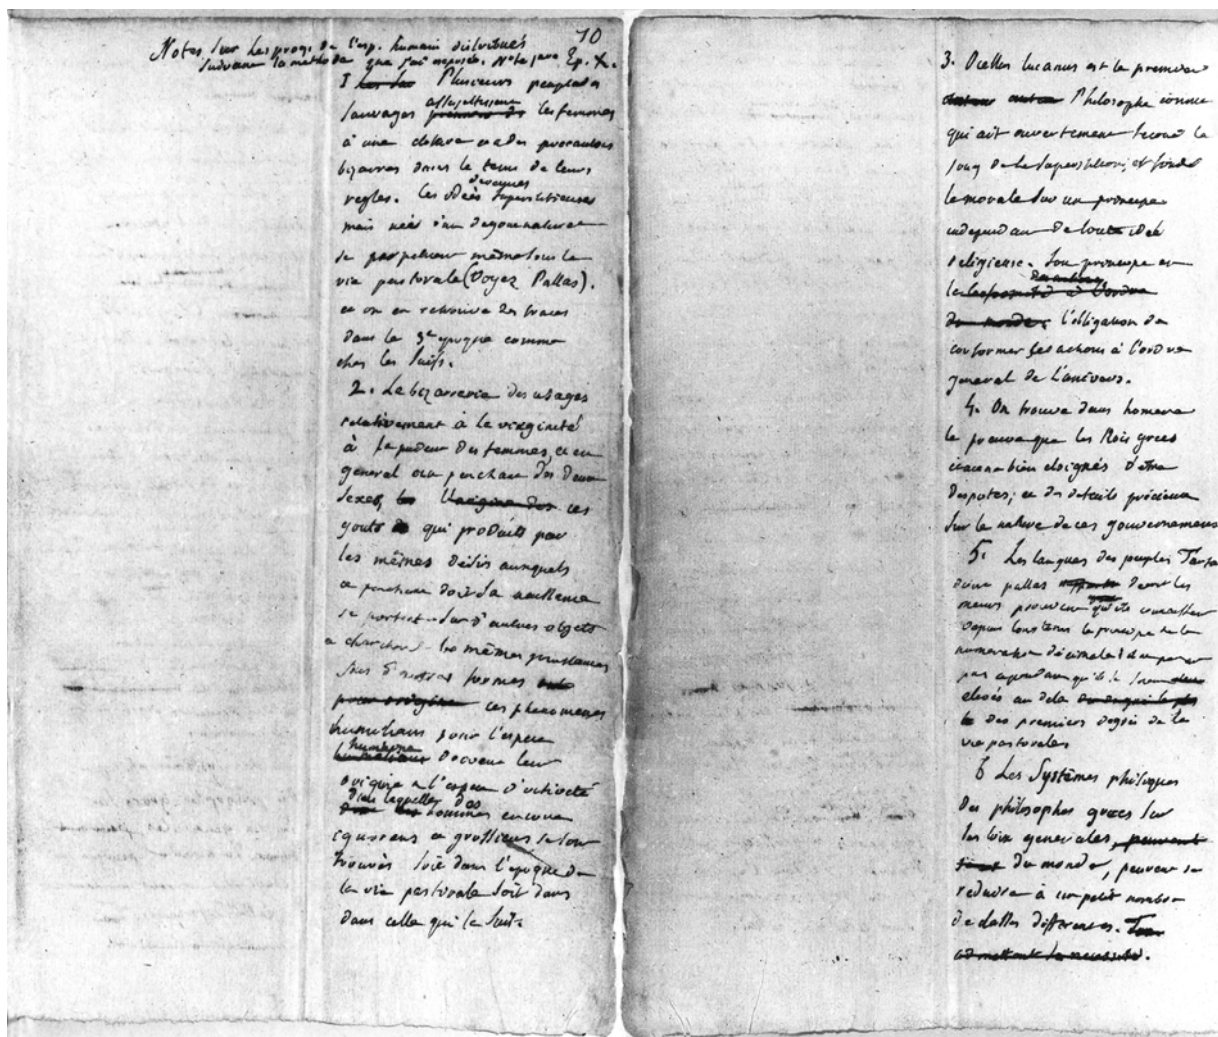 10
Notes sur les progs de l'esp. humain distribués
suivant la methode que j'ai exposée. Note 1ere Ep. X.
I Plusieurs peuplades
sauvages assujettissent les femmes
à une cloture et à des precautions
bizarres dans le tems de leurs
regles. Ces idées superstitieuses
mais nées d'un degout naturel
se perpetuent même sous la
vie pastorale (Voyez Pallas).
et on en retrouve des traces
dans la 3e epoque comme
chez les Juifs.
2. La bizarrerie des usages
relativement à la virginité
à la pudeur des femmes, et en
general au penchant des deux
sexes, l'origine des ces
gouts qui produits par
les mêmes désirs auxquels
ce penchant doit sa naissance
se portent sur d'autres objets
a chercher les mêmes jouissances
sous d'autres formes
ces phenomenes
humilians pour l'espece
humaine doivent leur
origine à l'espece d'oisiveté
dans laquelle des hommes encore
ignorans et grossiers se sont
trouvés soit dans l'epoque de
la vie pastorale soit dans
dans celle qui la suit.
3. Ocellus lucanus est le premier
Philosophe connu
qui ait ouvertement secoué le
joug de la superstition, et fondé
la morale sur un principe
independant de toute idée
religieuse. Son principe est
l'obligation de
conformer ses actions à l'ordre
general de l'univers.
4. On trouve dans homere
la preuve que les Rois grecs
etaient bien eloignés d'etre
despotes; et des details précieux
sur la nature de ces gouvernemens
5. Les langues des peuples
dont pallas decrit les
mœurs prouvent qu'ils connaissent
depuis longtems le principe de la
numeration décimale:
pas cependant qu'ils se soient
elevés au dela
des premiers degrés de la
vie pastorale
6 Les Systêmes philiques
des philosophes grecs sur
les loix generales, peuvent
du monde, peuvent se
reduire à un petit nombre
de classes differentes.
admettant la necessité.